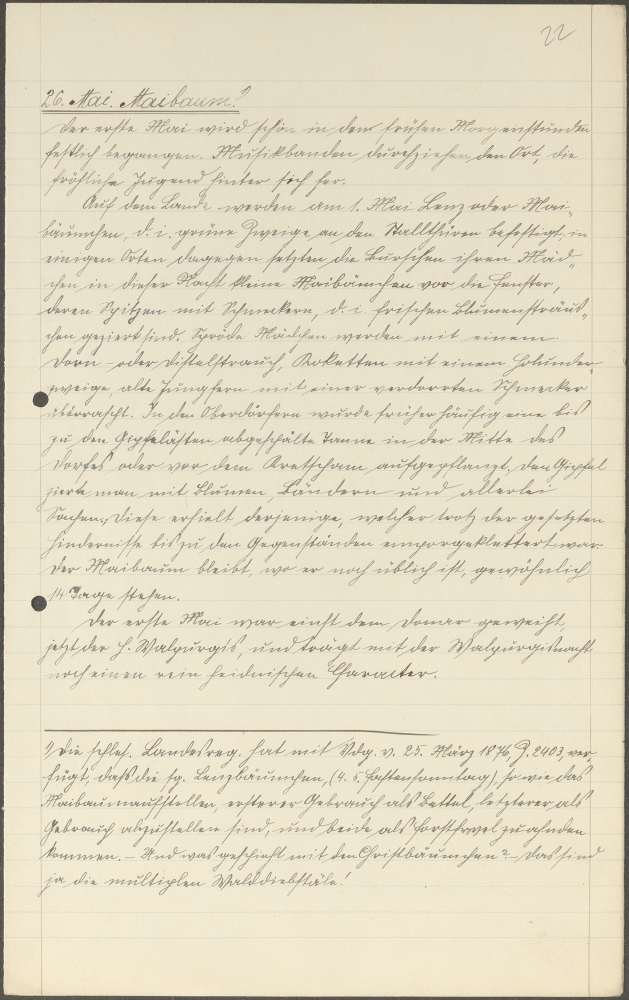 22
26. Mai. Maibaum.¹⁾
Der erste Mai wird schon in den frühen Morgenstunden
festlich begangen. Musikbanden durchziehen den Ort, die
fröhliche Jugend hinter sich her.
Auf dem Lande werden am 1. Mai Lenz oder Mai-
bäumchen, d. i. grüne Zweige, an den Stallthüren befestigt, in
einigen Orten dagegen setzten die Burschen ihren Mäd-
chen in dieser Nacht kleine Maibäumchen vor die Fenster,
deren Spitzen mit Schmeckern, d. i. frischen Blumensträuß-
chen geziert sind. Spröde Mädchen werden mit einem
Dorn- oder Distelstrauch, Koketten mit einem Holunder-
zweige, alte Jungfern mit einer verdorrten Schmecker
überrascht. In den Oberdörfern wurde früher häufig eine bis
zu den Gipfelästen abgeschälte Tanne in der Mitte des
Dorfes oder vor dem Kretscham aufgepflanzt, den Gipfel
zierte man mit Blumen, Bändern und allerlei
Sachen, diese erhielt derjenige, welcher trotz der gesetzten
Hindernisse bis zu den Gegenständen emporgeklettert war.
Der Maibaum bleibt, wo er noch üblich ist, gewöhnlich
14 Tage stehen.
Der erste Mai war einst dem Donar geweiht,
jetzt der h. Walpurgis, und trägt mit der Walpurgisnacht
noch einen rein heidnischen Character.
¹⁾ Die schles. Landesreg. hat mit Vdg. v. 25. März 1876, Z. 2403, ver-
fügt, daß die sg. Lenzbäumchen, (4. 5. Fastensonntag), so wie das
Maibaumaufstellen, ersterer Gebrauch als Bettel, letzterer als
Gebrauch abzustellen sind, und beide als Forstfrevel zu ahnden
kommen. – Und was geschieht mit den Christbäumchen? – Das sind
ja die multiplen Walddiebstäle!